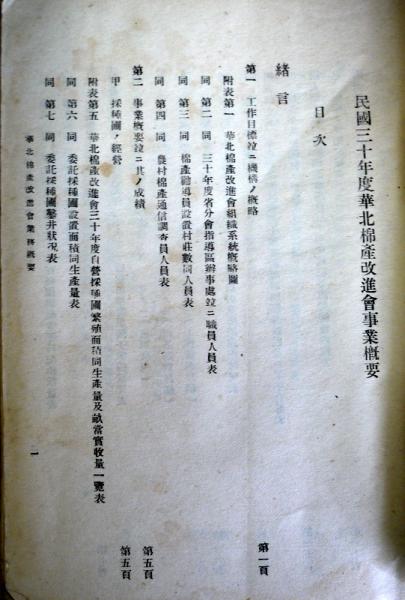 民國三十年度華北棉產改進會事業概要
目次
緒言
第一 工作目標竝ニ機構ノ概略 第一頁
附表第一 華北棉產改進會組織系統概略圖
同 第二 同 三十年度省分會指導區辦事處竝ニ職員人員表
同 第三 同 棉產勸導員設置村莊數同人員表
同 第四 同 農村棉產通信調查員人員表
第二 事業概要竝ニ其ノ成績 第五頁
甲 採種圃ノ經營 第五頁
附表第五 華北棉產改進會三十年度自營採種圃繁殖面積同生產量及畝當實收量一覽表
同 第六 同 委託採種圃設置面積同生產量表
同 第七 同 委託採種圃鑿井狀況表
華北棉產改進會業務概要 一